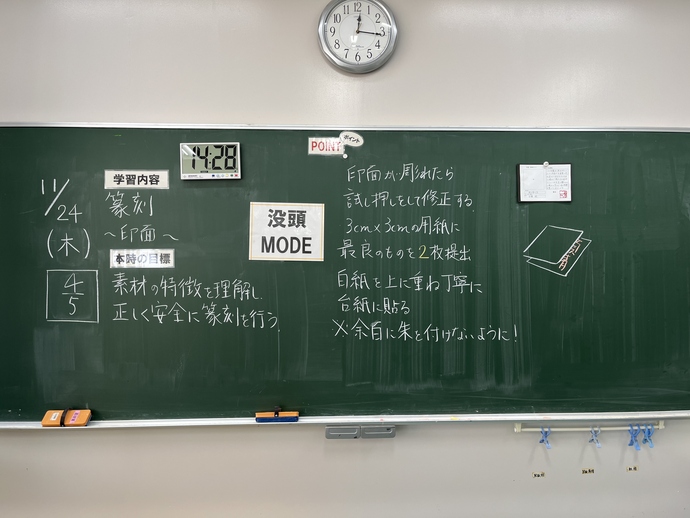 12
1
2
3
4
5
6
7
8
9
10
11
POINT
ポイント
14:28
11/24
(木)
4/5
学習内容
篆刻
～印面～
本時の目標
素材の特徴を理解し
正しく安全に篆刻を行う
没頭
MODE
印面が彫れたら
試し押しをして修正する
3cm×3cmの用紙に
最良のものを2枚提出
白紙を上に重ね丁寧に
台紙に貼る
※余白に朱を付けないように!